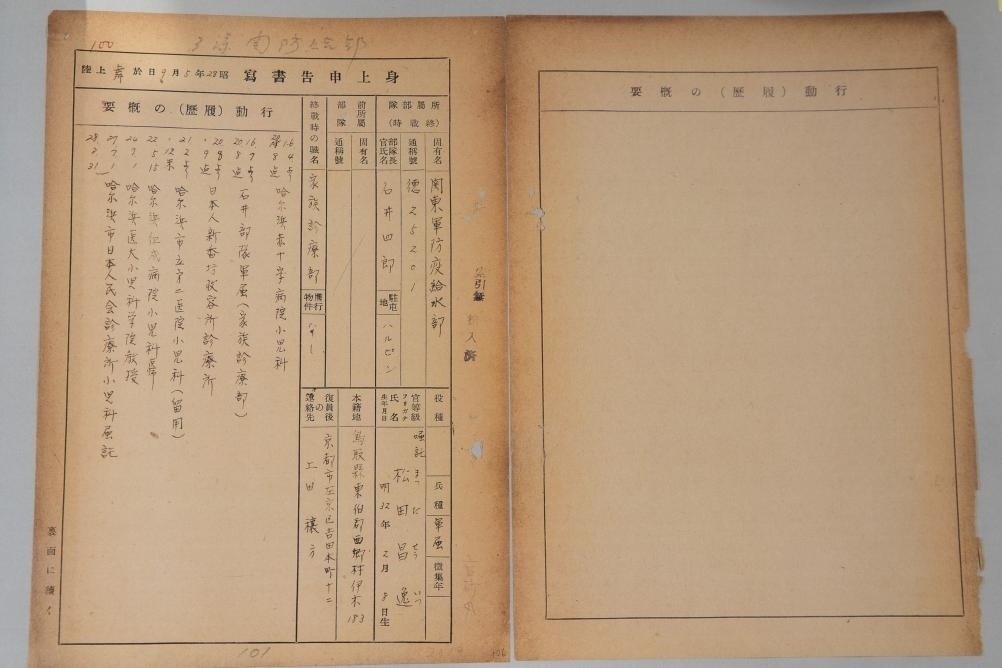 100
身上申告書寫 昭28年5月9日於舞上陸
所屬部隊(終戰時)
固有名 関東軍防疫給水部
通稱號 德25201
部隊長官氏名 石井四郎
駐屯地 ハルピン
前所屬部隊
固有名
通稱號
終戰時の職名 家族診療部
携行物件 なし
役種
兵種 軍属
徵集年
官等級 嘱託
フリガナ
氏名 松田昌逸
生年月日 明32年2月8日生
本籍地 鳥取縣東伯郡西郷村伊木183
復員後の連絡先 京都市左京区吉田本町十二
上田穰方
行動(履歷)の概要
16 4
8 哈尔浜赤十字病院小児科
16 7
20 8 石井部隊軍属(家族診療部)
20 8
9 日本人新香坊收容所診療所
21 2
12末 哈尔浜市立第二医院小児科(留用)
22 5 15 哈尔浜仁成病院小児科
24 7 1 哈尔浜医大小児科学院教授
27 7 1
28 2 31 哈尔浜市日本人民会診療所小児科属託
裏面に續く
101
106
行動(履歷)の概要